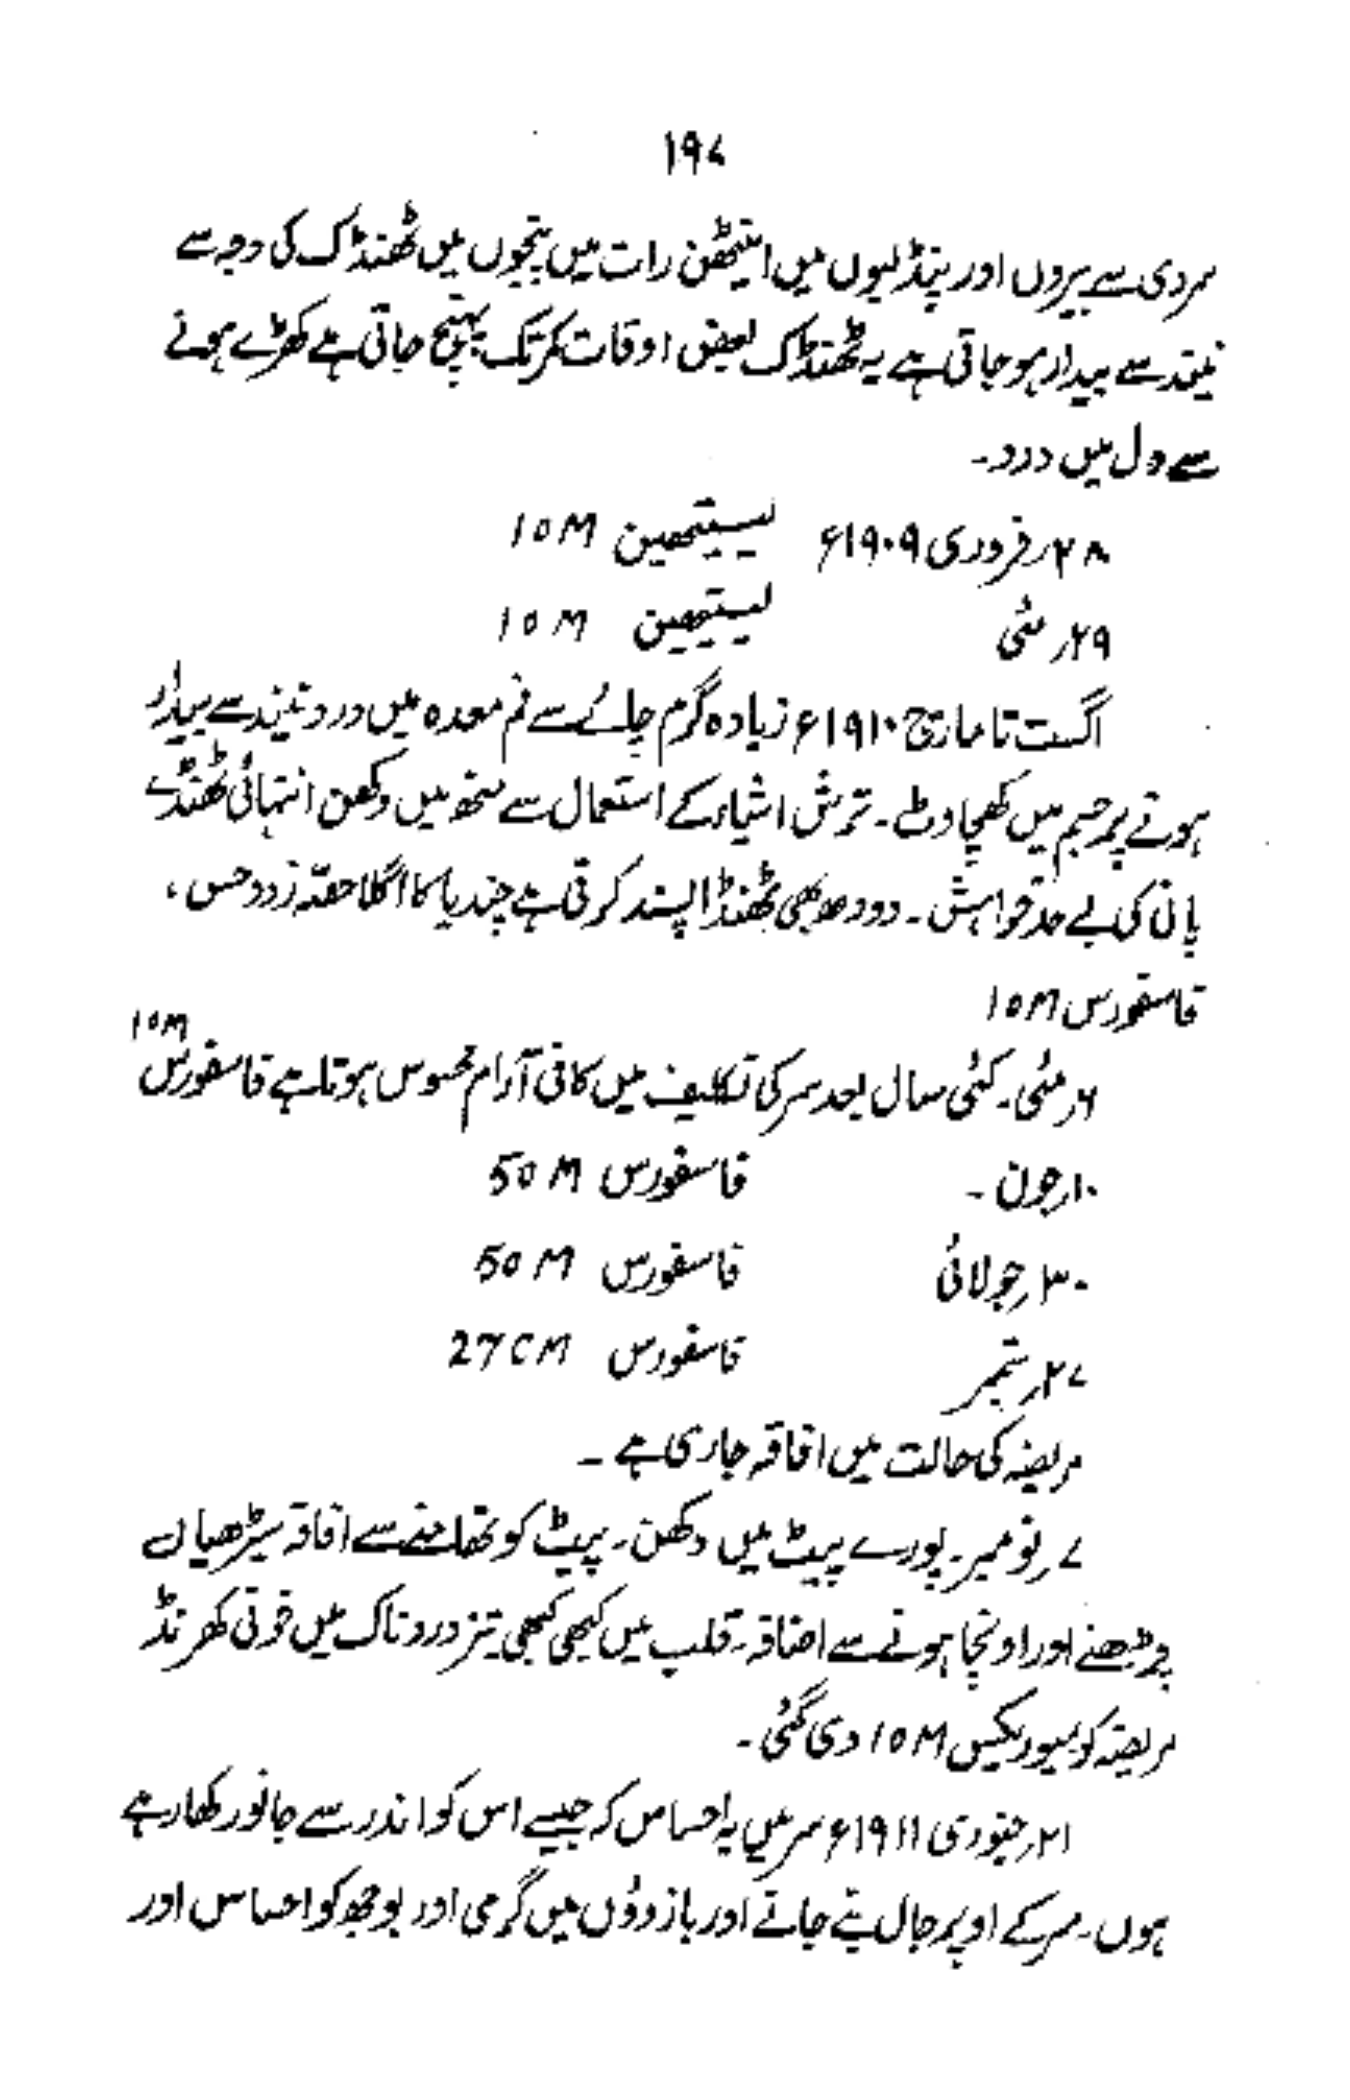 ۱۹۷
سردی سے پیروں اور پنڈلیوں میں اینٹھن رات میں پنجوں میں ٹھنڈک کی وجہ سے
نیند سے بیدار ہو جاتی ہے یہ ٹھنڈک بعض اوقات کمر تک پہنچ جاتی ہے کھڑے ہونے
سے دل میں درد۔
۲۸؍ فروری ۱۹۰۹ء لیسیتھین 10M
۲۹؍ مئی لیسیتھین 10M
اگست تا مارچ ۱۹۱۰ء زیادہ گرم چائے سے فم معدہ میں درد نیند سے بیدار
ہونے پر جسم میں کھچاوٹ۔ ترش اشیاء کے استعمال سے منھ میں دکھن انتہائی ٹھنڈے
پانی کی بے حد خواہش۔ دودھ بھی ٹھنڈا پسند کرتی ہے چندیا کا اگلا حصّہ زود حس،
فاسفورس 10M
۶؍ مئی۔ کئی سال بعد سر کی تکلیف میں کافی آرام محسوس ہوتا ہے فاسفورس 10M
۱۰؍ جون۔ فاسفورس 50M
۳۰؍ جولائی فاسفورس 50M
۲۷؍ ستمبر فاسفورس 27CM
مریضہ کی حالت میں افاقہ جاری ہے۔
۷؍ نومبر۔ پورے پیٹ میں دکھن۔ پیٹ کو تھامنے سے افاقہ سیڑھیاں
چڑھنے اور اونچا ہونے سے اضافہ۔ قلب میں کبھی کبھی تیز درد ناک میں خونی کھرنڈ
مریضہ کو میوریکس 10M دی گئی۔
۲۱؍ جنوری ۱۹۱۱ء سر میں یہ احساس کہ جیسے اس کو اندر سے جانور کھا رہے
ہوں۔ سر کے اوپر جال بنے جانے اور بازوؤں میں گرمی اور بوجھ کو احساس اور